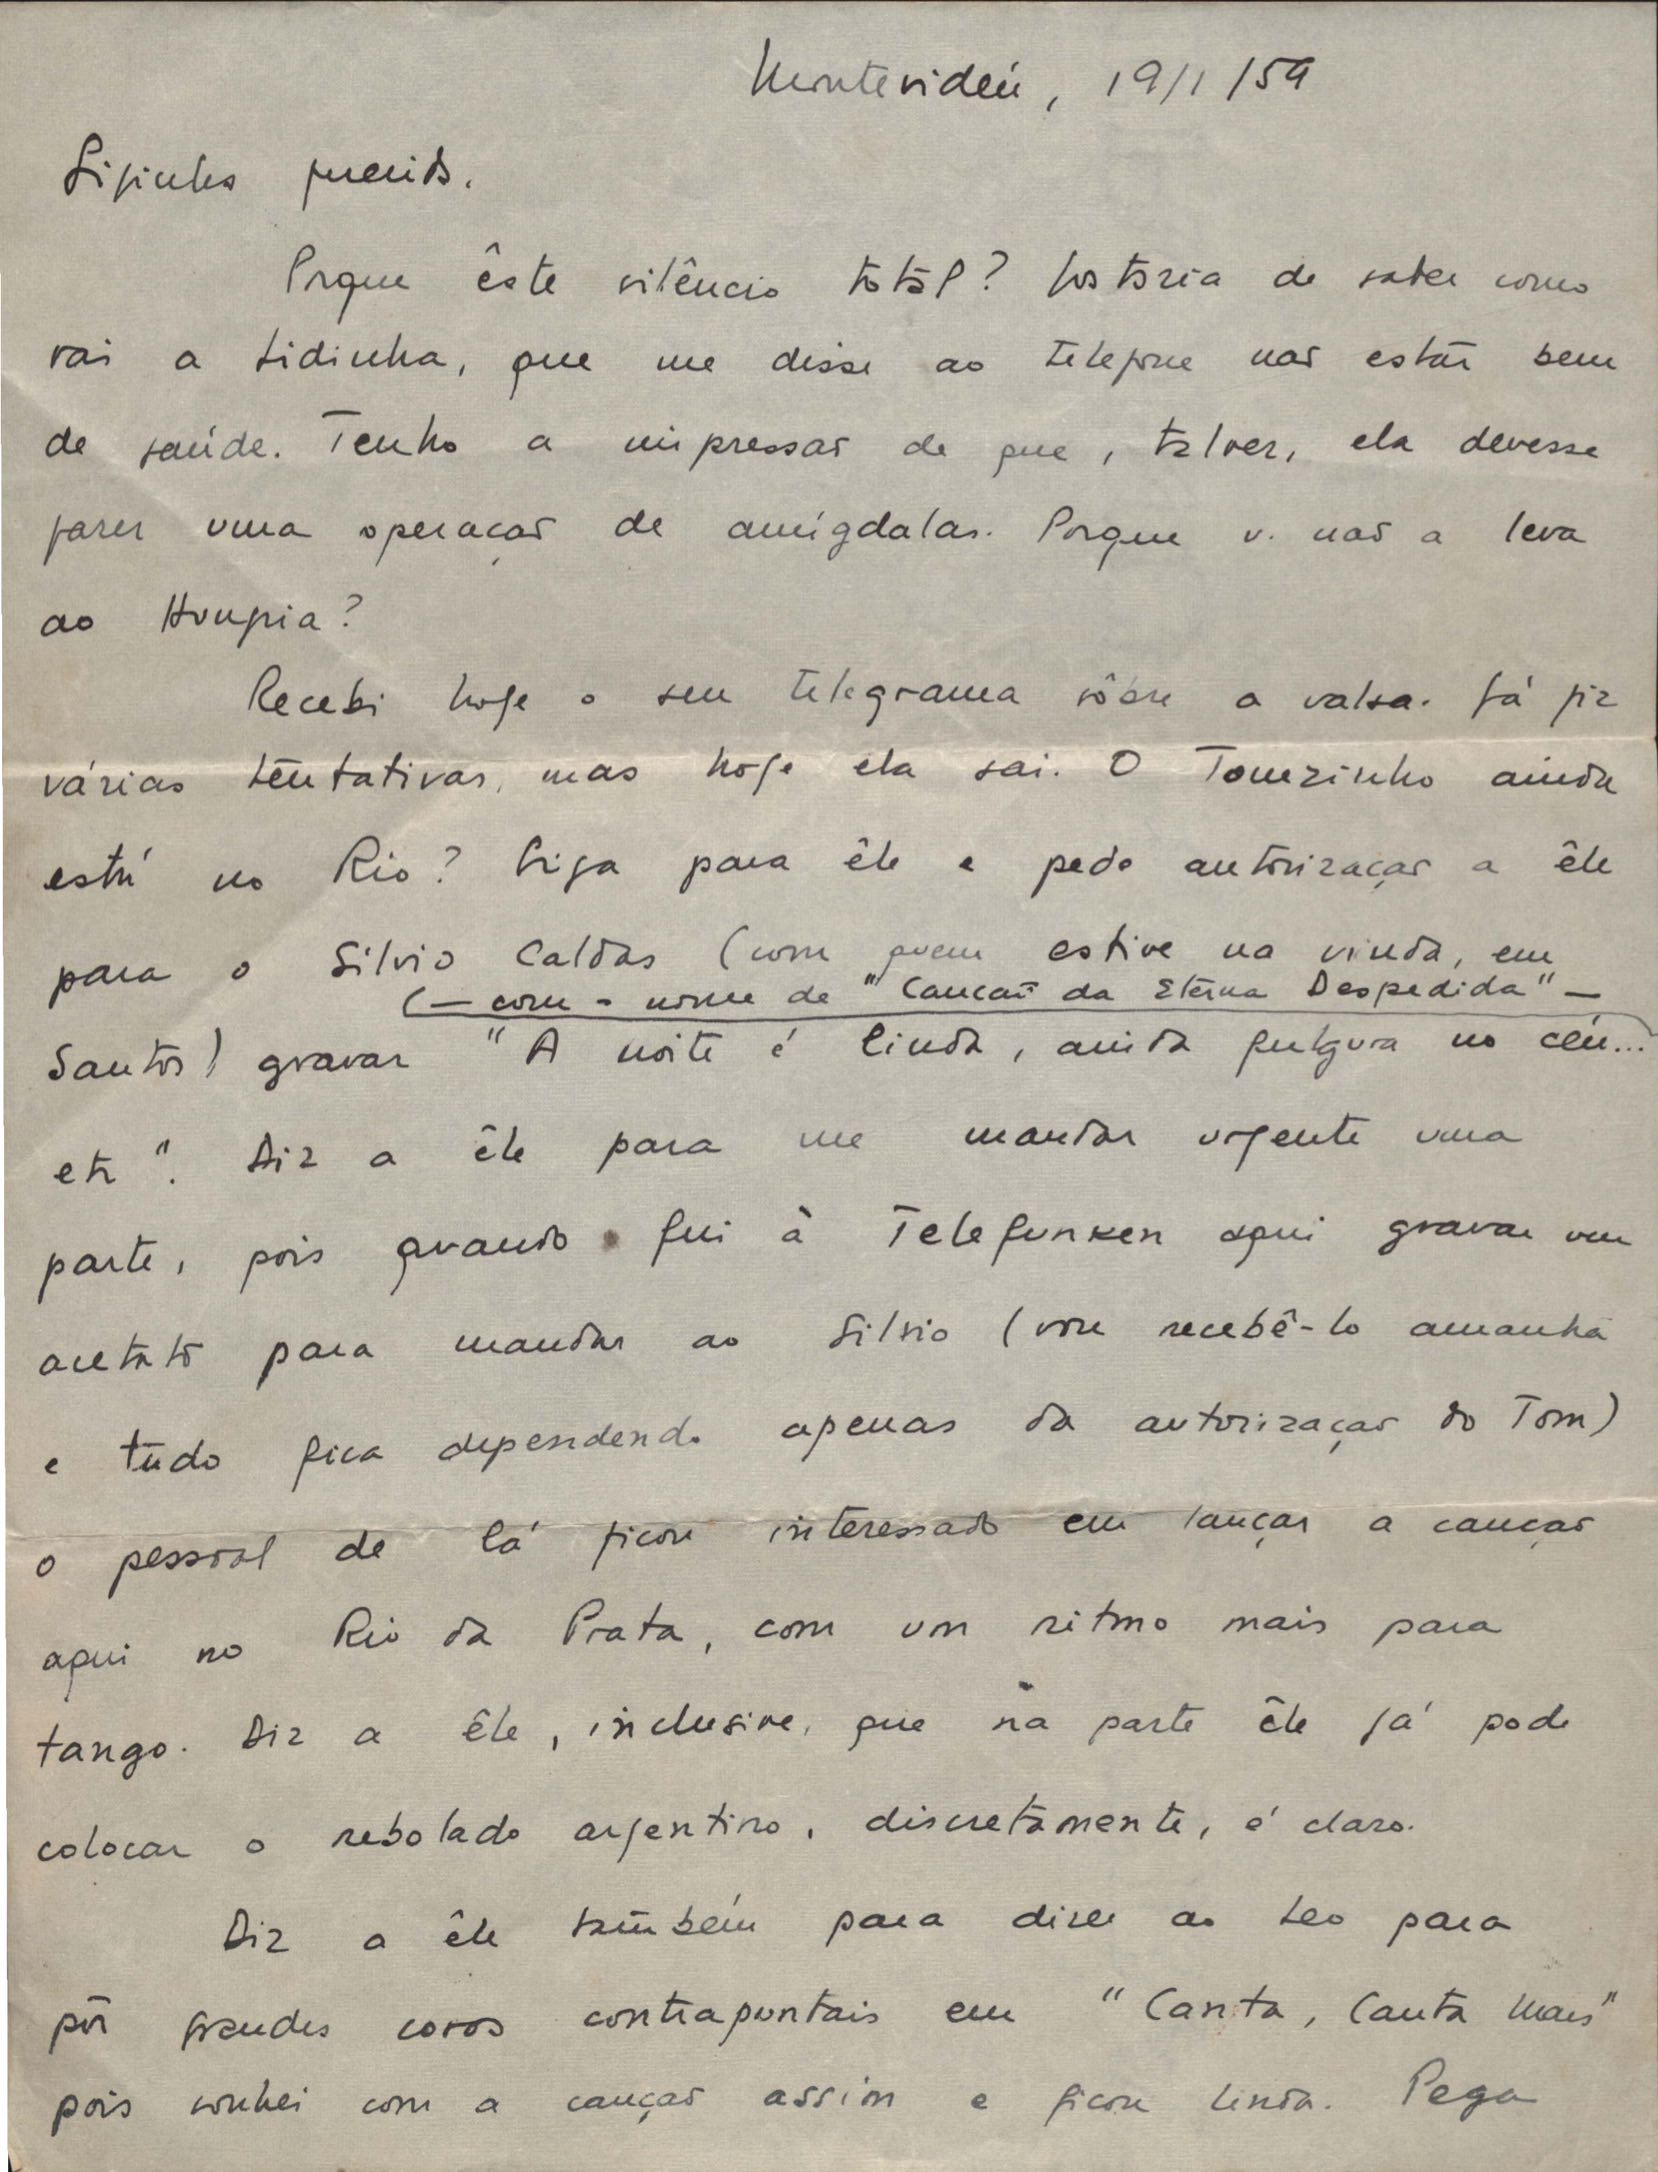 Montevidéu, 19/1/59
Lifinha querida.
Porque êste silêncio total? Gostaria de saber como
vai a Lidinha, que me disse ao telefone não estar bem
de saúde. Tenho a impressão de que, talvez, ela devesse
fazer uma operação de amígdalas. Porque v. não a leva
ao Hungria?
Recebi hoje o seu telegrama sôbre a valsa. Já fiz
várias tentativas, mas hoje ela sai. O Tomzinho ainda
está no Rio? Liga para êle e pede autorização a êle
para o Silvio Caldas (com quem estive na vinda, em
(— com o nome de "Canção da Eterna Despedida" —
Santos) gravar "A noite é linda, ainda fulgura no céu...
etc". Diz a êle para me mandar urgente uma
parte, pois quando fui à Telefunken aqui gravar um
acetato para mandar ao Silvio (vou recebê-lo amanhã
e tudo fica dependendo apenas da autorização do Tom)
o pessoal de lá ficou interessado em lançar a canção
aqui no Rio da Prata, com um ritmo mais para
tango. Diz a êle, inclusive, que na parte êle já pode
colocar o rebolado argentino, discretamente, é claro.
Diz a êle também para dizer ao Leo para
pôr grandes coros contrapuntais em "Canta, Canta Mais"
pois sonhei com a canção assim e ficou linda. Pega